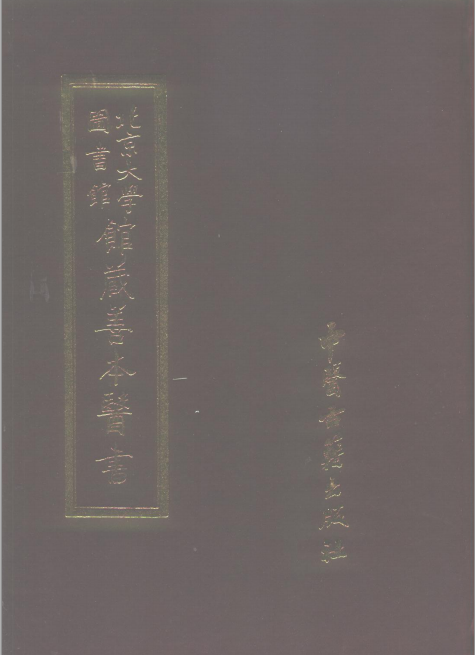 北京大学
圖書館
館藏善本醫書
中醫古籍出版社